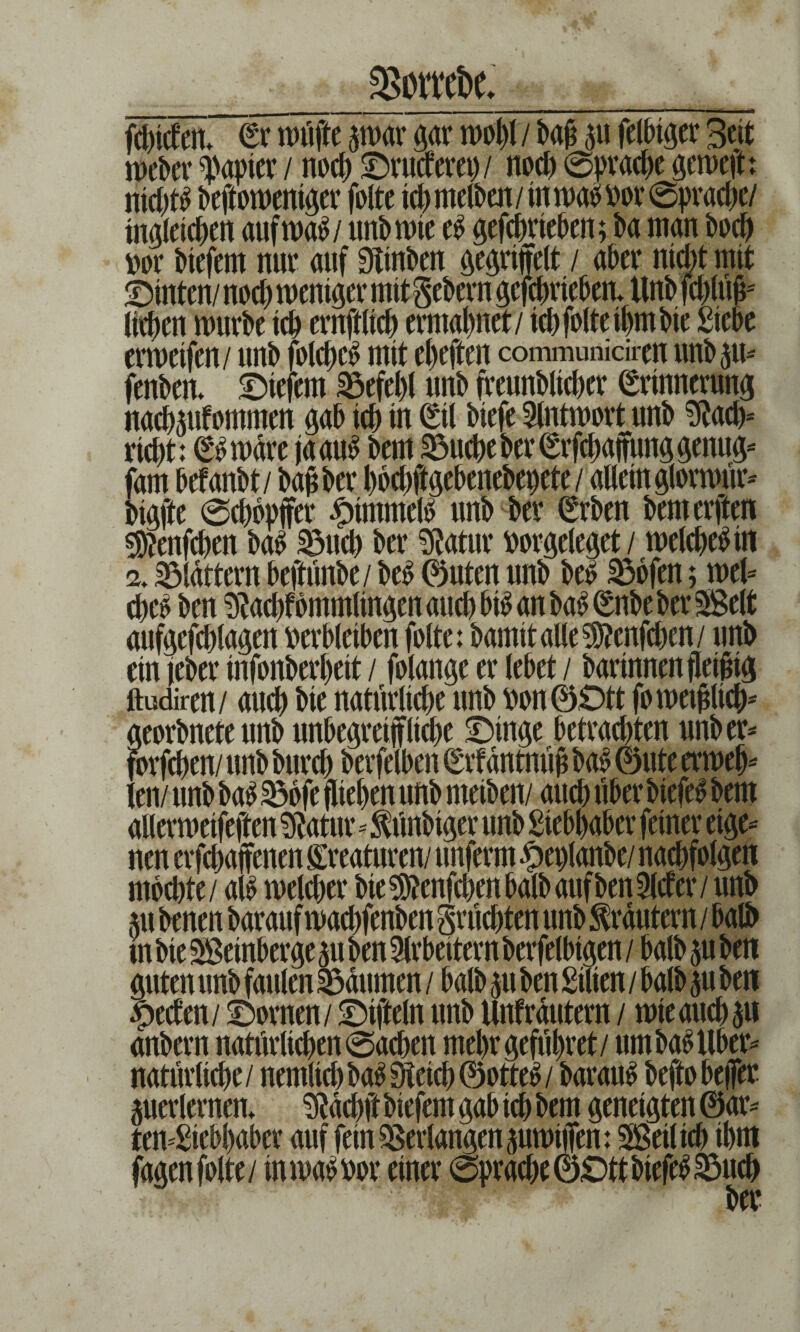 Vorrede.
schicken. Er wüste zwar gar wohl / daß zu selbiger Zeit
weder Papier / noch Druckerey / noch Sprache gewest:
nichts destoweniger solte ich melden / in was vor Sprache /
ingleichen auf was / und wie es geschrieben; da man doch
vor diesem nur auf Rinden gegriffelt / aber nicht mit
Dinten / noch weniger mit Federn geschrieben. Und schlüß-
lichen wurde ich ernstlich ermahnet / ich solte ihm die Liebe
erweisen / und solches mit ehesten communiciren und zu-
senden. Diesem Befehl und freundlicher Erinnerung
nachzukommen gab ich in Eil diese Antwort und Nach-
richt: Es wäre ja aus dem Buche der Erschaffung genug-
sam bekandt / daß der höchstgebenedeyete / allein glorwür-
digste Schöpffer Himmels und der Erden dem ersten
Menschen das Buch der Natur vorgeleget / welches in
2. Blättern bestünde / des Guten und des Bösen; wel-
ches den Nachkömmlingen auch bis an das Ende der Welt
aufgeschlagen verbleiben solte: damit alle Menschen / und
ein jeder insonderheit / solange er lebet / darinnen fleißig
studiren / auch die natürliche und von GOtt so weißlich-
geordnete und unbegreiffliche Dinge betrachten und er-
forschen / und durch derselben Erkäntnüß das Gute erweh-
len / und das Böse fliehen und meiden / auch über dieses dem
allerweisesten Natur-Kündiger und Liebhaber seiner eige-
nen erschaffenen Creaturen / unserm Heylande / nachfolgen
möchte / als welcher die Menschen bald auf den Acker / und
zu denen darauf wachsenden Früchten und Kräutern / bald
in die Weinberge zu den Arbeitern derselbigen / bald zu den
guten und faulen Bäumen / bald zu den Lilien / bald zu den
Hecken / Dornen / Disteln und Unkräutern / wie auch zu
andern natürlichen Sachen mehr geführet / um das Uber-
natürliche / nemlich das Reich Gottes / daraus desto besser
zuerlernen. Nächst diesem gab ich dem geneigten Gar-
ten-Liebhaber auf sein Verlangen zuwissen: Weil ich ihm
sagen solte / in was vor einer Sprache GOtt dieses Buch
der